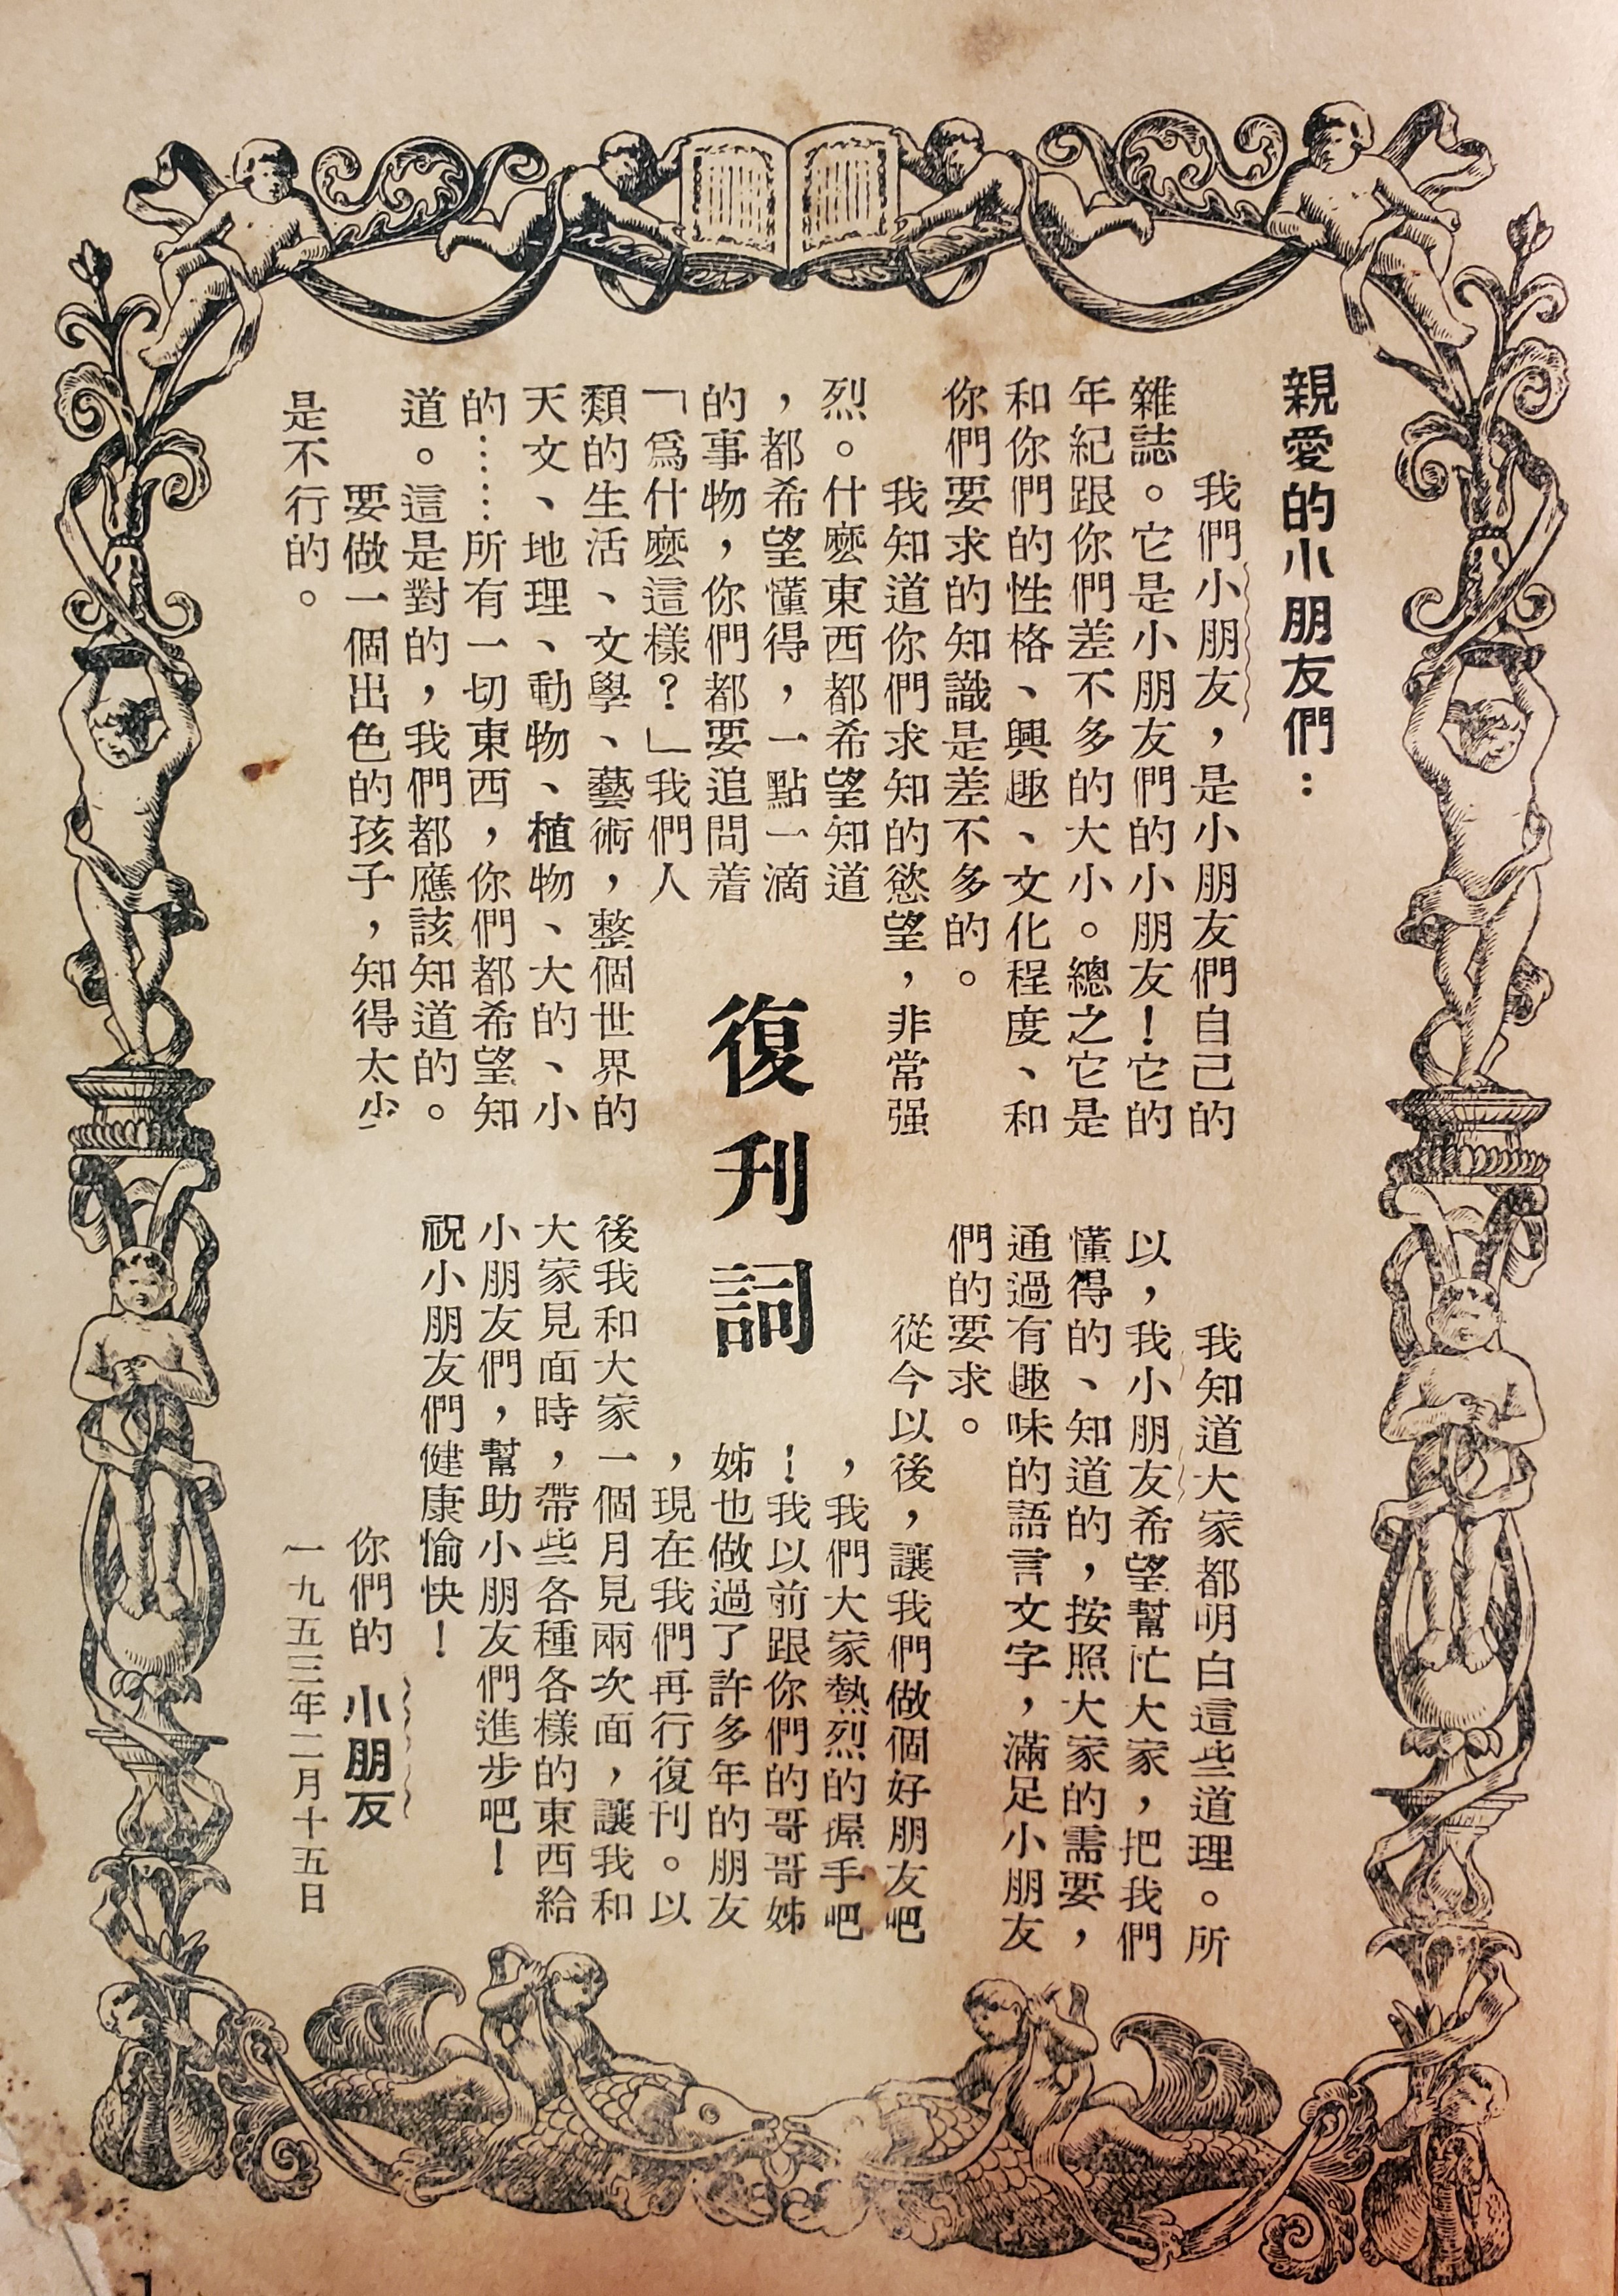 復刊詞
親愛的小朋友們：
我們小朋友，是小朋友們自己的
雜誌。它是小朋友們的小朋友！它的
年紀跟你們差不多的大小。總之它是
和你們的性格、興趣、文化程度、和
你們要求的知識是差不多的。
我知道你們求知的慾望，非常强
烈。什麼東西都希望知道
，都希望懂得，一點一滴
的事物，你們都要追問着
「爲什麼這樣？」我們人
類的生活、文學、藝術，整個世界的
天文、地理、動物、植物、大的、小
的……所有一切東西，你們都希望知
道。這是對的，我們都應該知道的。
要做一個出色的孩子，知得太少
是不行的。
我知道大家都明白這些道理。所
以，我小朋友希望幫忙大家，把我們
懂得的、知道的，按照大家的需要，
通過有趣味的語言文字，滿足小朋友
們的要求。
從今以後，讓我們做個好朋友吧
，我們大家熱烈的握手吧
！我以前跟你們的哥哥姊
姊也做過了許多年的朋友
，現在我們再行復刊。以
後我和大家一個月見兩次面，讓我和
大家見面時，帶些各種各樣的東西給
小朋友們，幫助小朋友們進步吧！
祝小朋友們健康愉快！
你們的 小朋友
一九五三年二月十五日
1